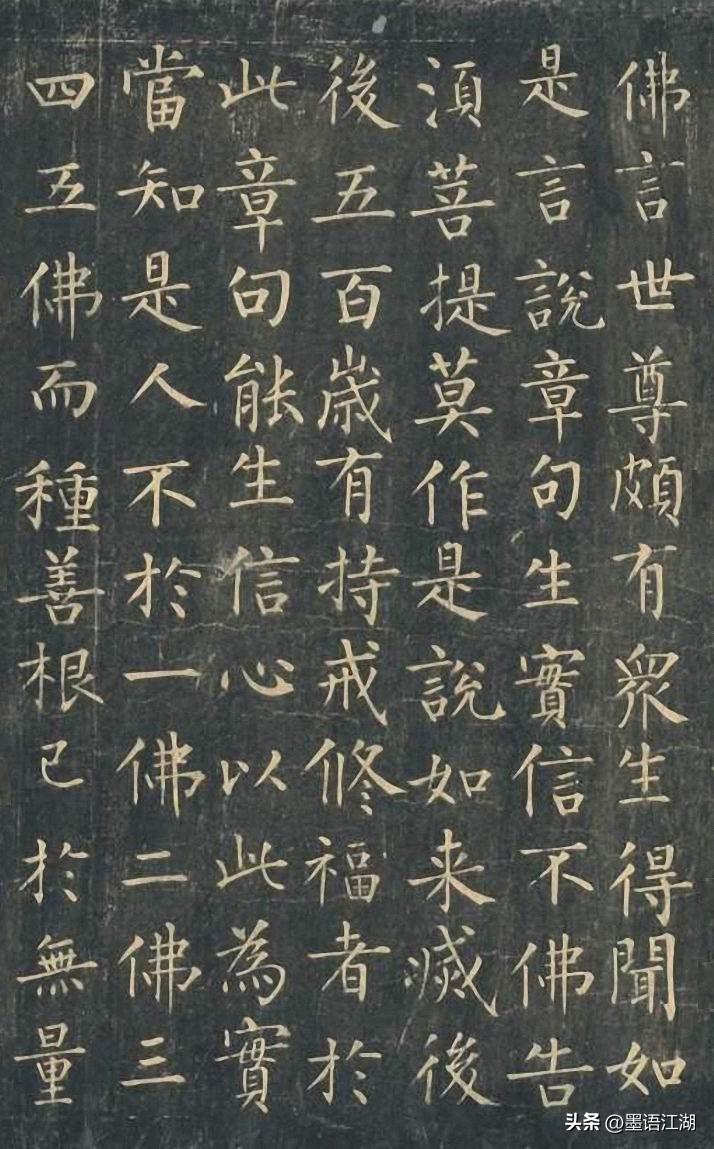 佛言世尊頗有眾生得聞如
是言說章句生實信不佛告
須菩提莫作是說如来滅後
後五百歲有持戒修福者於
此章句能生信心以此為實
當知是人不於一佛二佛三
四五佛而種善根已於無量
头条 @墨语江湖